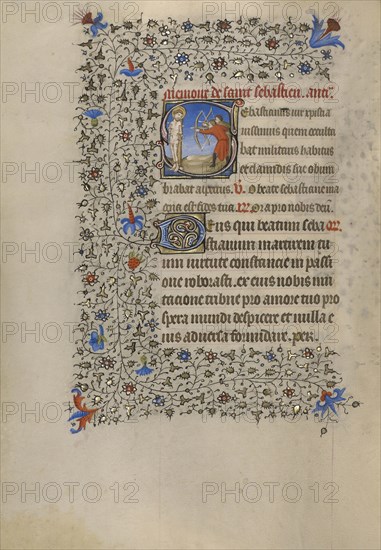 Memoire de saint sebastien. ant.
Sebastianus vir xpistia
nissimus quem occulta
bat militaris habitus
et clamidis sue obum
brabat aspectus. V. O beate sebastiane ma
gna est fides tua. Ora pro nobis
Deus qui beatum seba
stianum martirem tu
um virtute constancie in passi
one roborasti. ex eius nobis imi
tacione tribue pro amore tuo pro
spera mundi despicere et nulla e
ius adversa formidare. per.
PHOTO 12